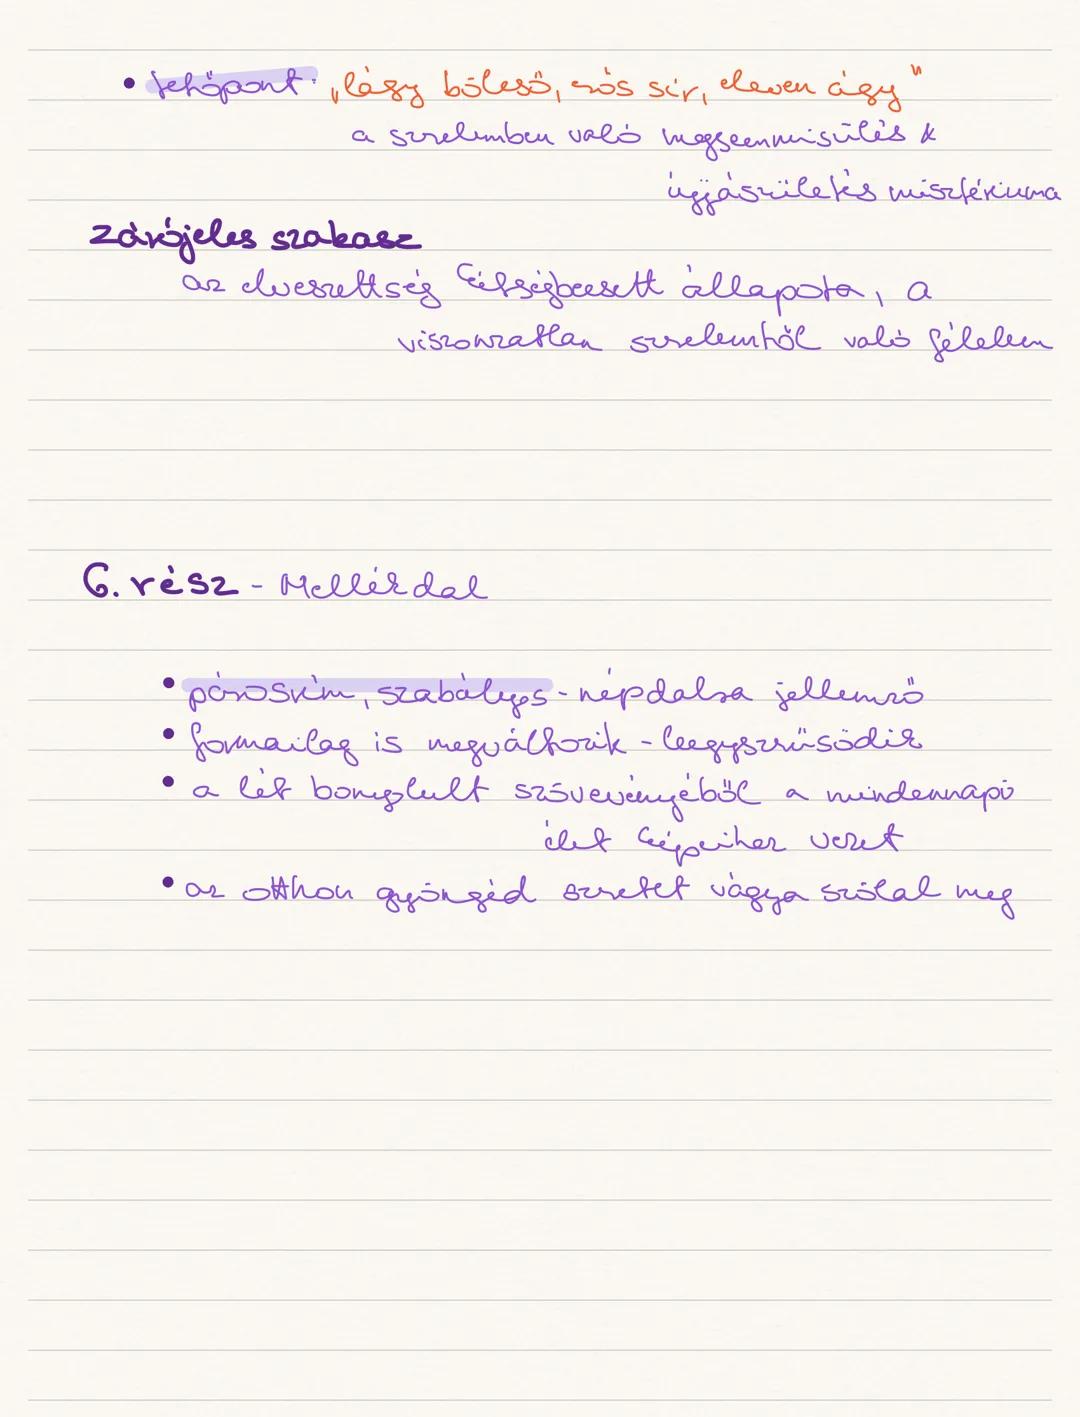 • tetőpont: „lágy bölcső, erős sír, eleven ágy"
a szerelemben való megsemmisülés &
újjászületés misztériuma
Zárójeles szakasz
az elveszettség kétségbeesett állapota, a
viszonzatlan szerelemtől való félelem
6. rész - Mellékdal
• párosrím, szabályos - népdalra jellemző
• formailag is megváltozik - leegyszerűsödik
• a lét bonyolult szövevényéből a mindennapi
élet képeihez vezet
• az otthon gyöngéd szeretet vágya szólal meg